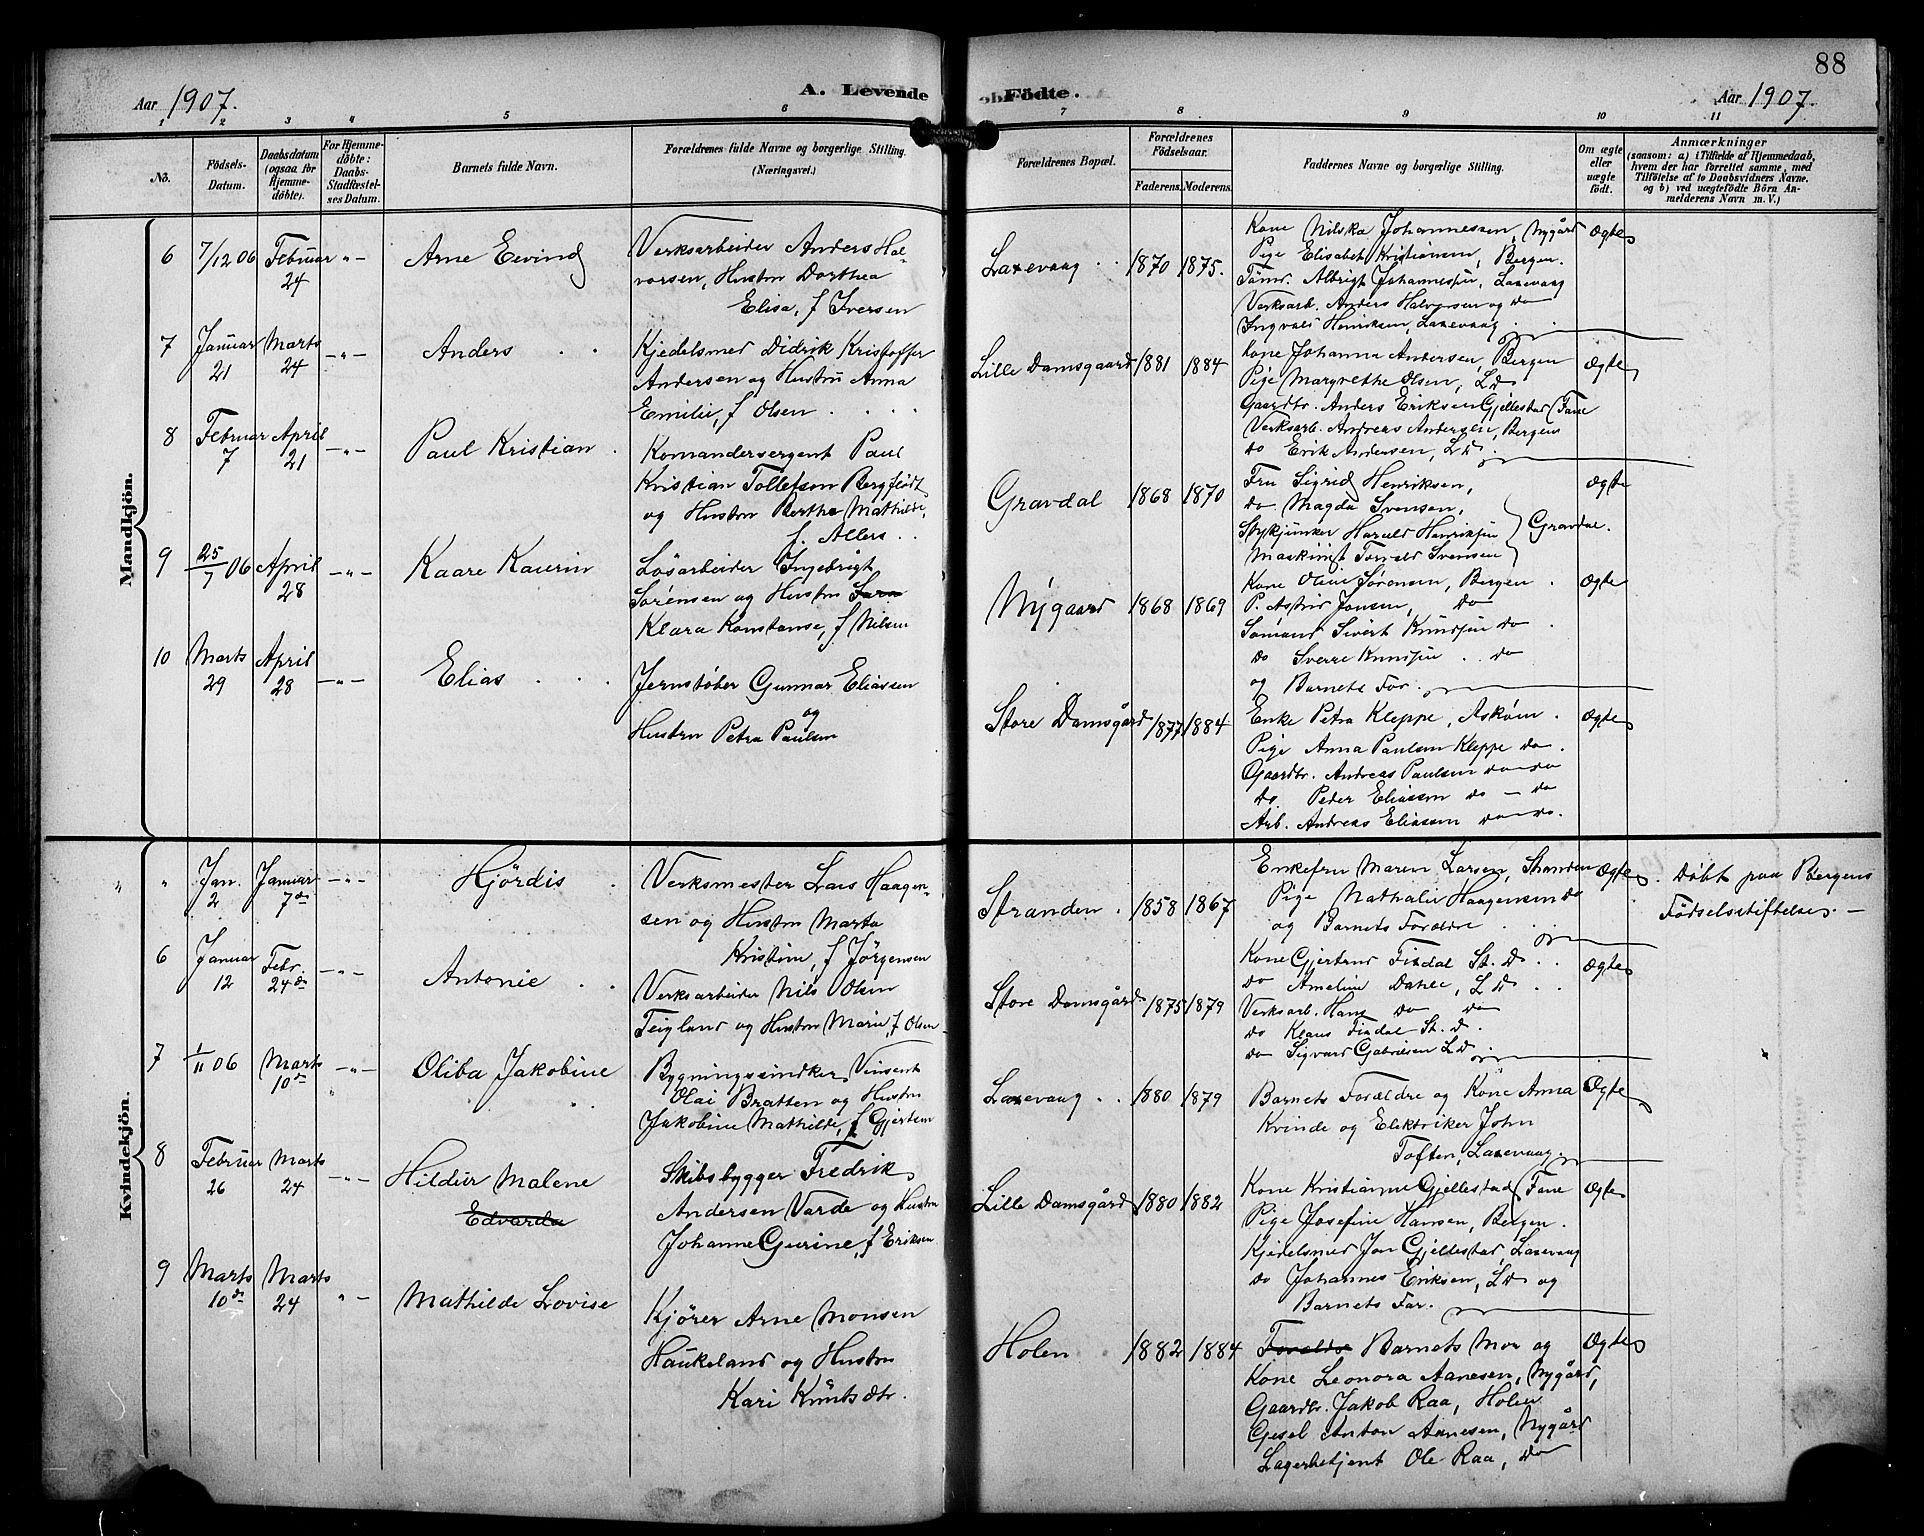 88
Aar 1907.
A. Levende
Födte.
Aar 1907.
1 2 3 4 5 6 7 8 9 10 11
No.
Födsels-
Datum.
Daabsdatum
(ogsaa for
Hjemme-
döbte).
For Hjemme-
döbte:
Daabs-
Stadfæstel-
ses Datum.
Barnets fulde Navn.
Forældrenes fulde Navne og borgerlige Stilling.
(Næringsvei.)
Forældrenes Bopæl.
Forældrenes
Födselsaar.
Faderens.
Moderens.
Faddernes Navne og borgerlige Stilling.
Om ægte
eller
uægte
födt.
Anmærkninger
(saasom: a) i Tilfælde af Hjemmedaab,
hvem der har forrettet samme, med
Tilföielse af to Daabsvidners Navne,
og b) ved uægtefödte Börn An-
melderens Navn m. V.)
Mandkjön.
6
7/12 06
Februar
24
-"-
Arne Eevind
Verksarbeider Anders Hal-
vorsen, Hustru Dorthea
Elisa, f Iversen
Laxevaag
1870
1875.
Kone Nilska Johannessen, Nygård
Pige Elisabet Kristiansen, Bergen.
Tömr. Albrigt Johannesen, Laxevaag
Verksarb. Anders Halvorsen og do
Ingvald Henriksen, Laxevaag
Ægte
7
Januar
21
Marts
24
-"-
Anders
Kjedelsmed Didrik Kristoffer
Andersen og Hustru Anna
Emilie, f Olsen
Lille Damsgaard
1881
1884
Kone Johanna Andersen, Bergen
Pige Margrethe Olsen, L D
Gaardbr. Anders Eriksen Gjellestad (Fane
Verksarb. Andreas Andersen, Bergen
do Erik Andersen, L D.
Ægte
8
Februar
7
April
21
-"-
Paul Kristian
Komandersergent Paul
Kristian Tollefsen Bergflödt
og Hustru Berthe Mathilde,
f. Allers
Gravdal
1868
1870
Fru Sigrid Henriksen,
do Magda Svensen,
Stykjunker Harald Henriksen
Maskinist Torvald Svensen
Gravdal.
Ægte
9
25/7 06
April
28
-"-
Kaare Kaurin
Lösarbeider Ingebrigt
Sörensen og Hustru Sara
Klara Konstanse, f Nilsen
Nygaard
1868
1869
Kone Oline Sörensen, Bergen
P. Astrid Jansen, do
Sömand Sivert Knudsen do
do Sverre Knudsen do
og Barnets Far.
Ægte
10
Marts
29
April
28
-"-
Elias
Jernstöber Gunnar Eliassen
og
Hustru Petra Paulsen
Store Damsgård
1877
1884
Enke Petra Kleppe, Asköen.
Pige Anna Paulsen Kleppe do.
Gaardbr. Andreas Paulsen do-do
do. Peder Eliassen do - do
Arb. Andreas Eliassen do-do.
Ægte
Kvindekjön.
"
"
Jan.
2
Januar
7de
-"-
Hjördis
Verksmester Lars Haagen-
sen og Hustru Marta
Kristine, f Jörgensen
Stranden
1858
1867
Enkefru Maren Larsen, Stranden
Pige Nathalie Haagensen do
og Barnets Forældre
Ægte
Döbt paa Bergens
Födselsstiftelse. -
6
Januar
12
Febr.
24de
-"-
Antonie
Verksarbeider Nils Olsen
Teigland og Hustru Marie f Olsen
Store Damsgård
1875
1879
Kone Gjertrud Findal St. D
do Ameline Dahle, L D
Verksarb. Hans do do
do Klaus Findal St. D.
do Sigvard Gabrielsen L D
Ægte
7
1/11 06
Marts
10de
-"-
Oliba Jakobine
Bygningssnedker Vinsent
Olai Bratten og Hustru
Jakobine Mathilde, f Gjertsen
Laxevaag
1880
1879
Barnets Forældre og Kone Anna
Kvinde og Elektriker John
Toften, Laxevaag
Ægte
8
Februar
26
Marts
24
-"-
Hildur Malene
Edvarda
Skibsbygger Fredrik
Andersen Varde og Hustru
Johanne Gurine, f Eriksen
Lille Damsgård
1880
1882
Kone Kristianne Gjellestad (Fane
Pige Josefine Hansen, Bergen.
Kjedelsmed Jan Gjellestad, Laxevaag
do Johannes Eriksen, L D og
Barnets Far.
Ægte
9
Marts
10de
Marts
24
"-
Mathilde Lovise
Kjörer Arne Monsen
Haukeland og Hustru
Kari Knuts dtr.
Holen
1882
1884
Foreldre Barnets Mor og
Kone Leonora Aanesen, Nygård,
Gaardbr. Jakob Raa, Holen
Gesel Anton Aanesen, Nygård
Lagerbetjent Ole Raa, do
Ægte